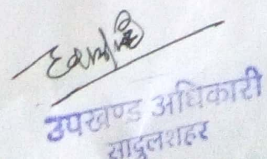 उपखण्ड अधिकारी
सादुलशहर